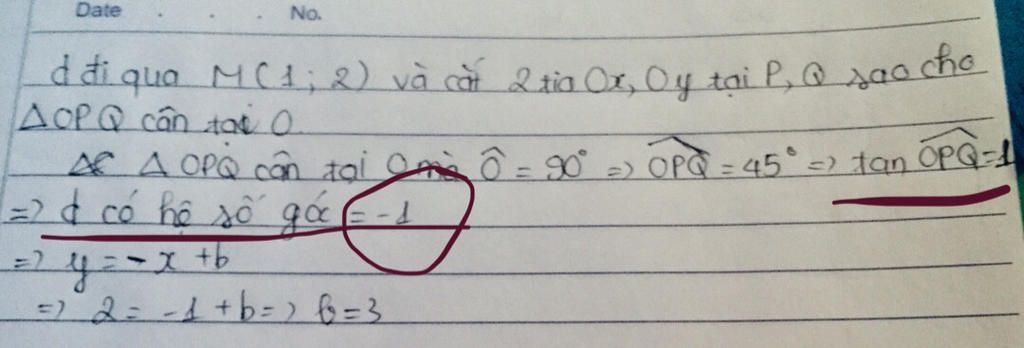 Date . . . No.
d đi qua M(1; 2) và cắt 2 tia Ox, Oy tại P, Q sao cho
△OPQ cân tại O
△OPQ cân tại O mà Ô = 90° => OPQ = 45° => tan OPQ = 1
=> d có hệ số góc = -1
=> y = -x + b
=> 2 = -1 + b => b = 3